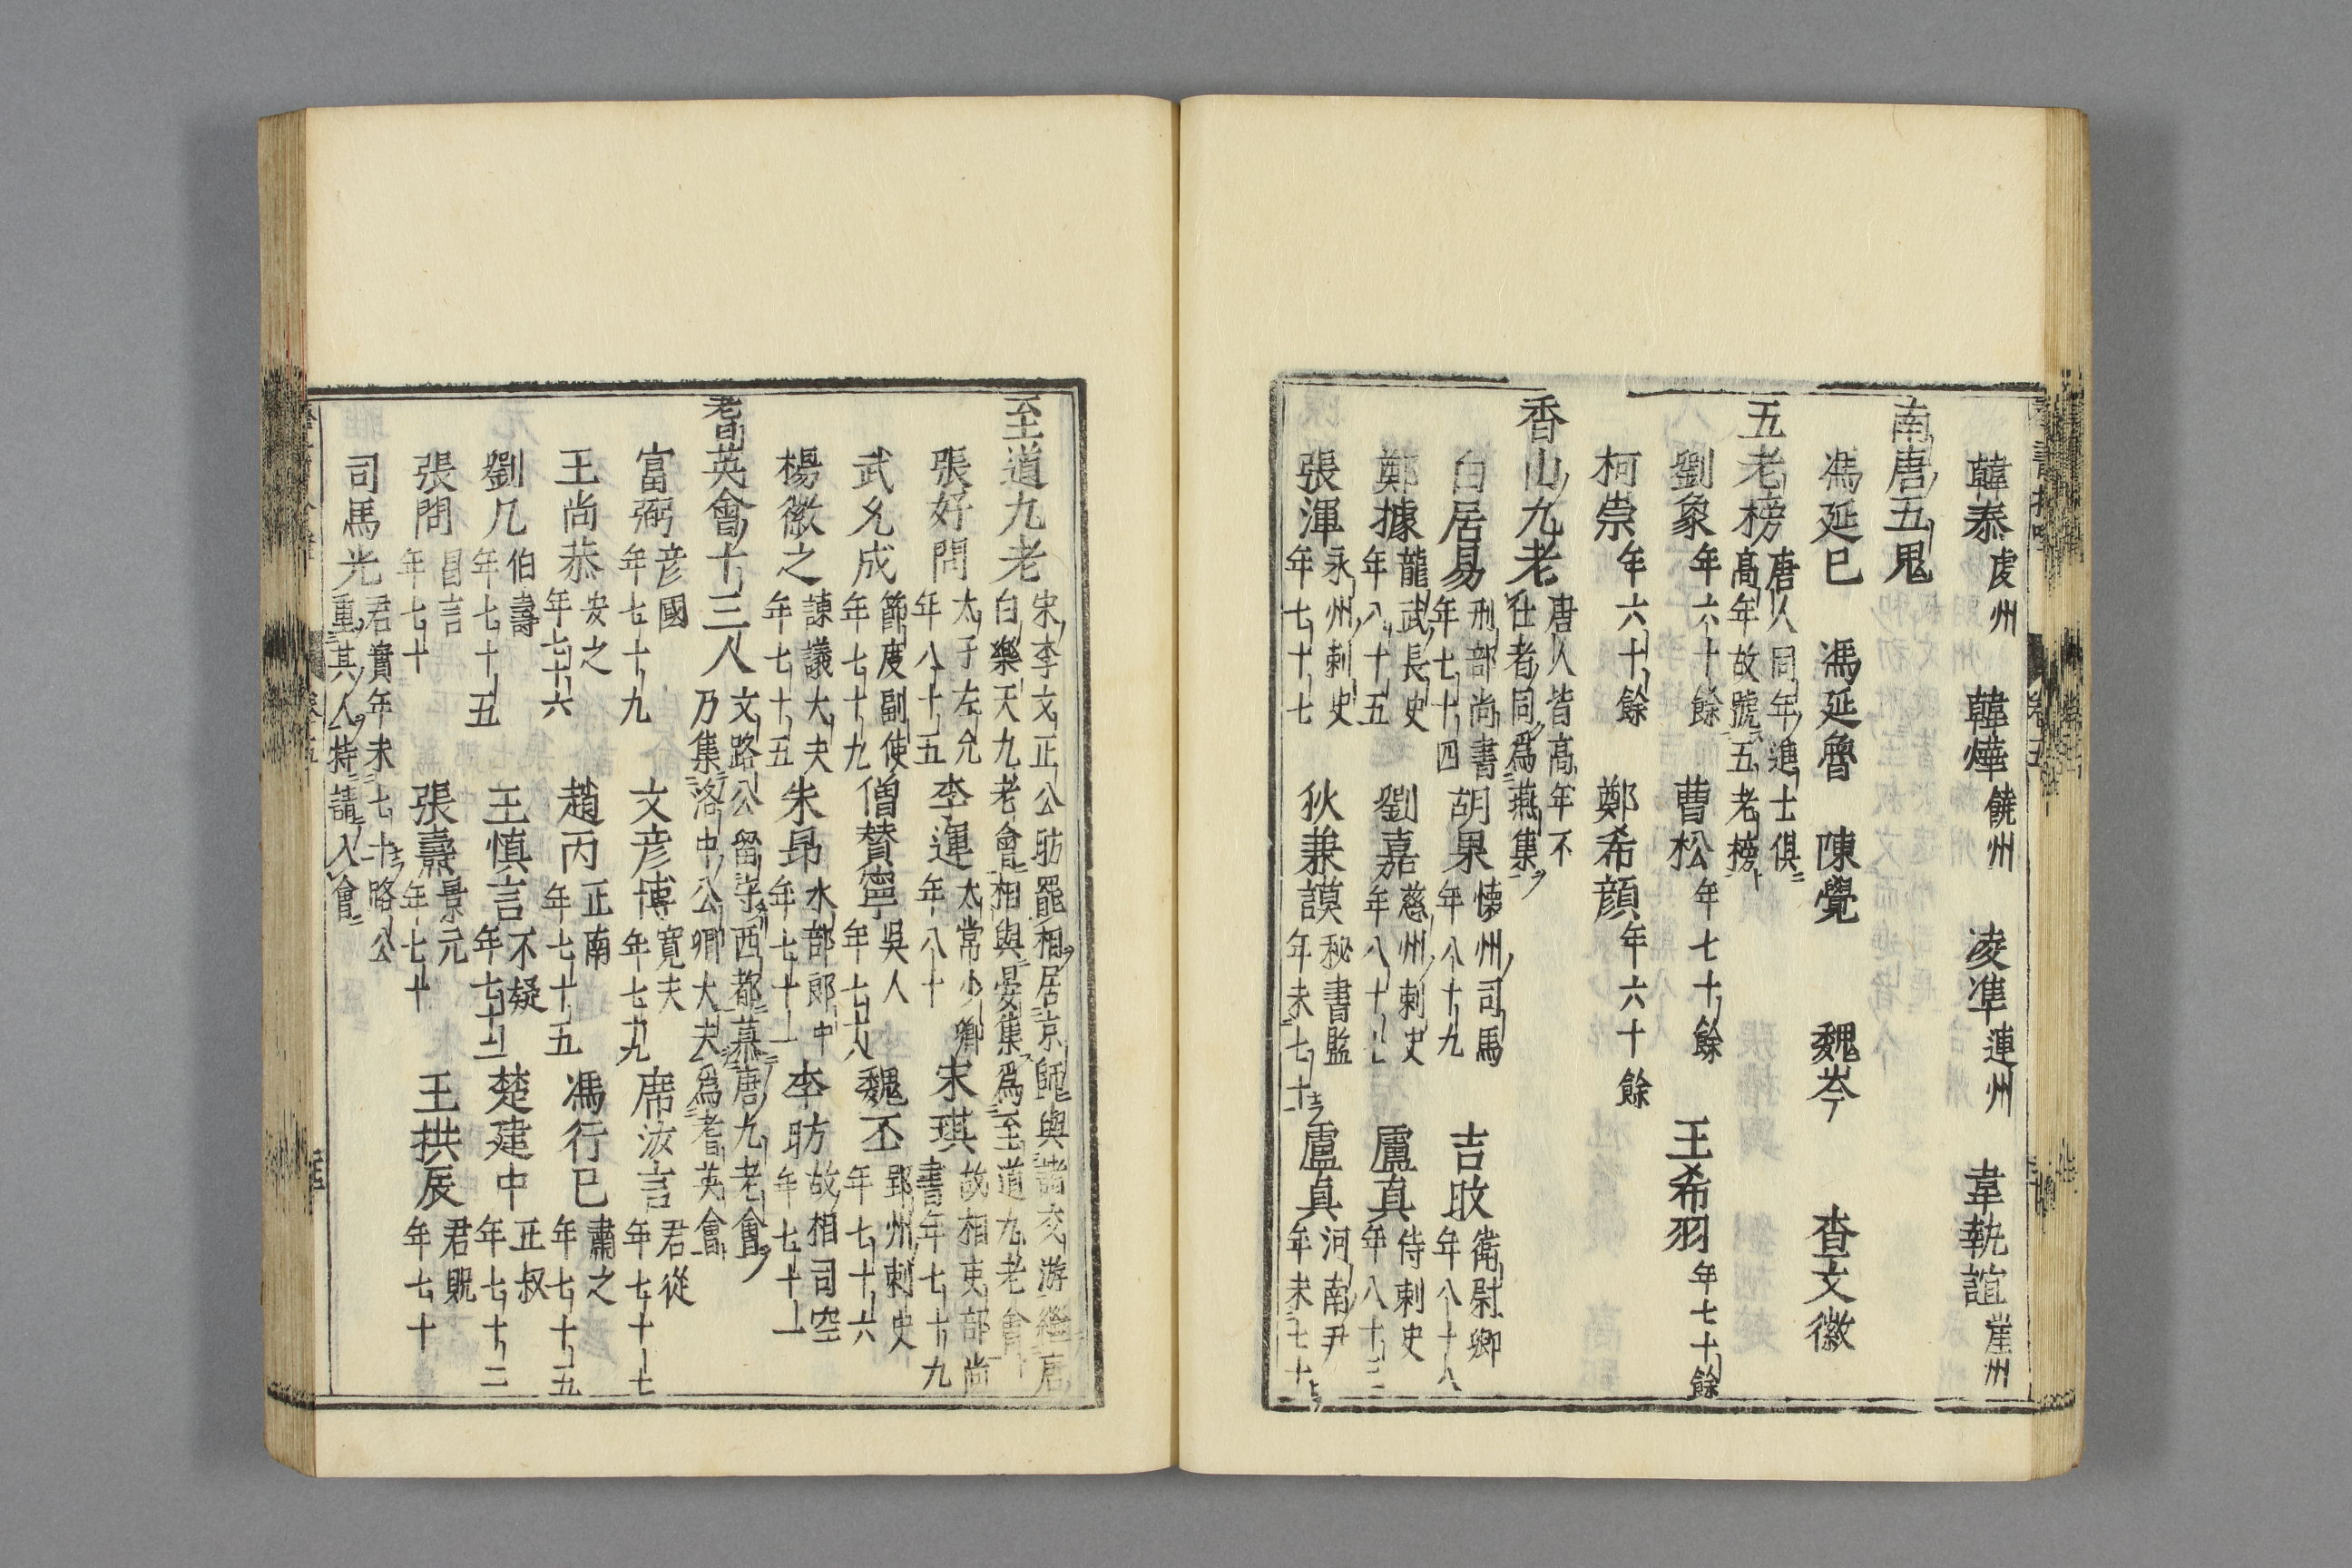 韓泰虔州 韓燁饒州 凌準連州 韋執誼崖州
南唐五鬼
馮延巳 馮延魯 陳覺 魏岑 查文徽
五老榜唐人同年進士俱高年故號五老榜
劉象年六十餘 曹松年七十餘 王希羽年七十餘
柯崇年六十餘 鄭希顔年六十餘
香山九老唐人皆高年不仕者同爲燕集
白居易刑部尚書年七十四 胡杲懷州司馬年八十九 吉旼衛尉卿年八十八
鄭據龍武長史年八十五 劉嘉慈州刺史年八十七 盧真侍刺史年八十三
張渾永州刺史年七十七 狄兼謨秘書監年未七十 盧真河南尹年未七十
至道九老宋李文正公昉罷相居京師與諸交游繼唐白樂天九老會相與晏集爲至道九老會
張好問太子左允年八十五 李運太常少卿年八十 宋琪故相吏部尚書年七十九
武允成節度副使年七十九 僧贊寧吳人年七十八 魏丕郢州刺史年七十六
楊徽之諫議大夫年七十五 朱昂水部郎中年七十一 李昉故相司空年七十一
耆英會十三人文路公留守西都慕唐九老會乃集洛中公卿大夫爲耆英會
富弼彦國年七十九 文彦博寬夫年七十九 席汝言君從年七十七
王尚恭安之年七十六 趙丙正南年七十五 馮行巳肅之年七十五
劉几伯壽年七十五 王慎言不疑年七十二 楚建中正叔年七十三
張問昌言年七十 張燾景元年七十 王拱辰君貺年七十
司馬光君實年未七十路公重其人特請入會